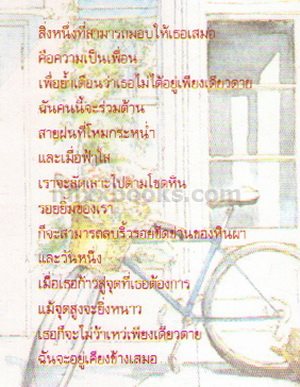 สิ่งหนึ่งที่สามารถมอบให้เธอเสมอ
คือความเป็นเพื่อน
เพื่อย้ำเตือนว่าเธอไม่ได้อยู่เพียงเดียวดาย
ฉันคนนี้จะร่วมต้าน
สายฝนที่โหมกระหน่ำ
และเมื่อฟ้าใส
เราจะลัดเลาะไปตามโขดหิน
รอยยิ้มของเรา
ก็จะสามารถลบริ้วรอยขีดข่วนของหินผา
และวันหนึ่ง
เมื่อเธอก้าวสู่จุดที่เธอต้องการ
แม้จุดสูงจะยิ่งหนาว
เธอก็จะไม่ว้าเหว่เพียงเดียวดาย
ฉันจะอยู่เคียงข้างเสมอ